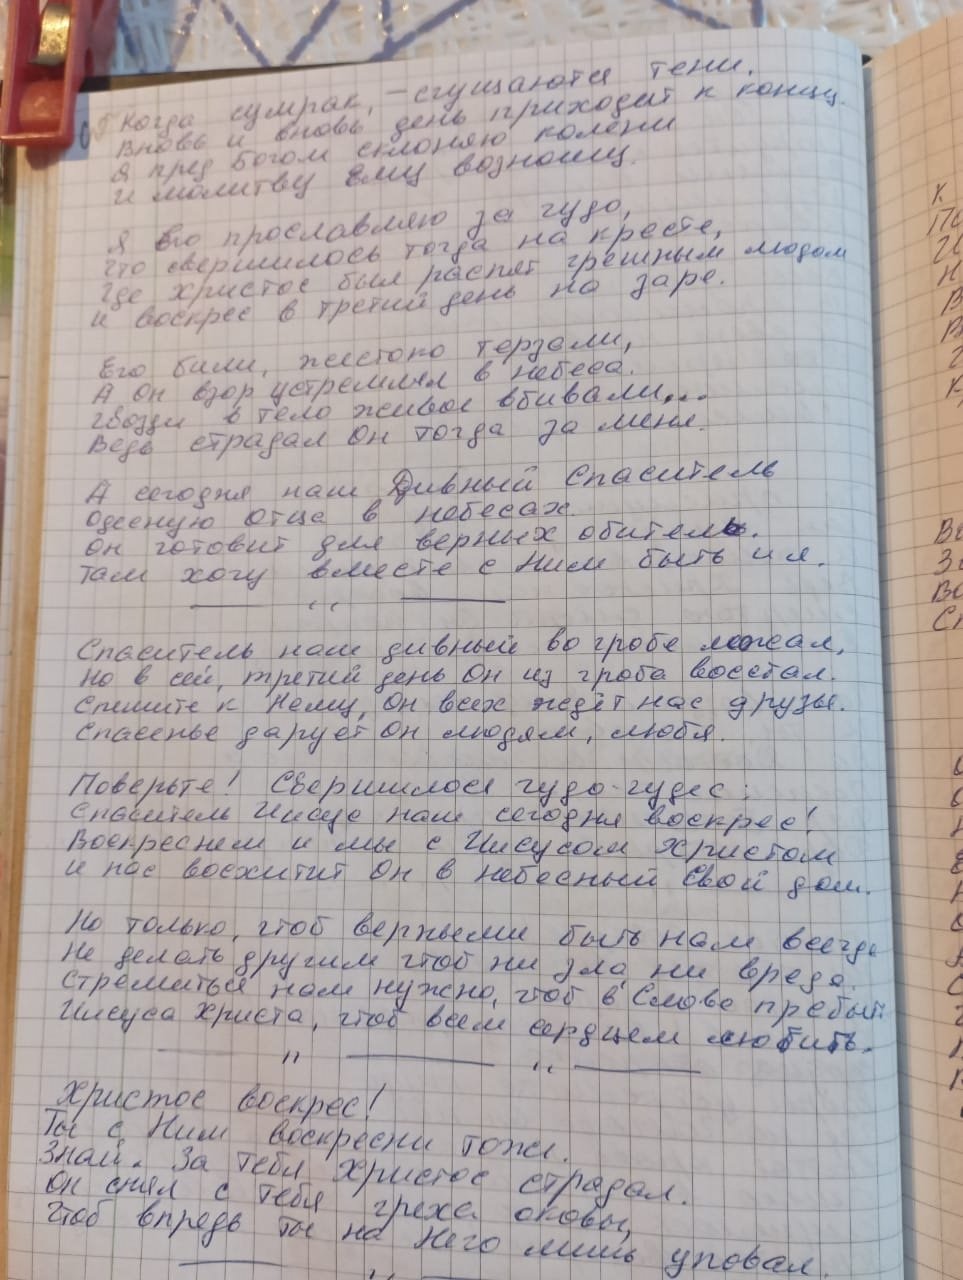 Когда сумрак, – сгущаются тени,
Вновь и вновь день приходит к концу.
Я пред Богом склоняю колени
И молитву Ему возношу.
Я Его прославляю за чудо,
Что свершилось тогда на кресте,
Где Христос был распят грешным людом
И воскрес в третий день на заре.
Его били, жестоко терзали,
А Он взор устремлял в небеса.
Гвозди в тело живое вбивали...
Ведь страдал Он тогда за меня.
А сегодня наш Дивный Спаситель
Одесную Отца в небесах.
Он готовит для верных обитель.
Там хочу вместе с Ним быть и я.
Спаситель наш дивный во гробе лежал,
Но в сей, третий день Он из гроба восстал.
Спешите к Нему, Он всех ждёт нас друзья.
Спасенье дарует Он людям, любя.
Поверьте! Свершилося чудо-чудес:
Спаситель Иисус наш сегодня воскрес!
Воскреснем и мы с Иисусом Христом
И нас восхитит Он в небесный Свой дом.
Но только, чтоб верными быть нам всегда
Не делать другим чтоб ни зла, ни вреда.
Стремиться нам нужно, чтоб в Слове пребыть
Иисуса Христа, чтоб всем сердцем любить.
Христос воскрес!
Ты с Ним воскресни тоже.
Знай. За тебя Христос страдал.
Он снял с тебя греха оковы,
Чтоб впредь ты на Него лишь уповал.